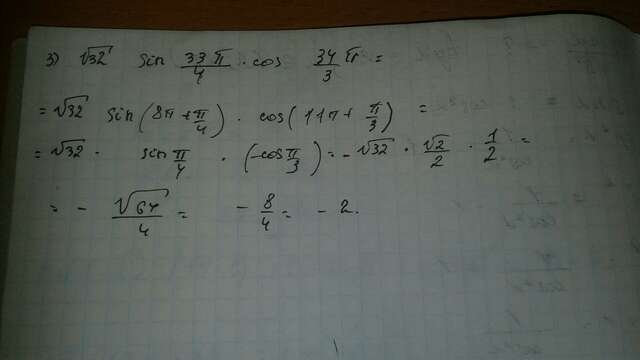 3) √32 sin 33π/4 · cos 34/3 π =
= √32 sin(8π + π/4) · cos(11π + π/3) =
= √32 · sin π/4 · (-cos π/3) = -√32 · √2/2 · 1/2 =
= - √64/4 = - 8/4 = - 2.